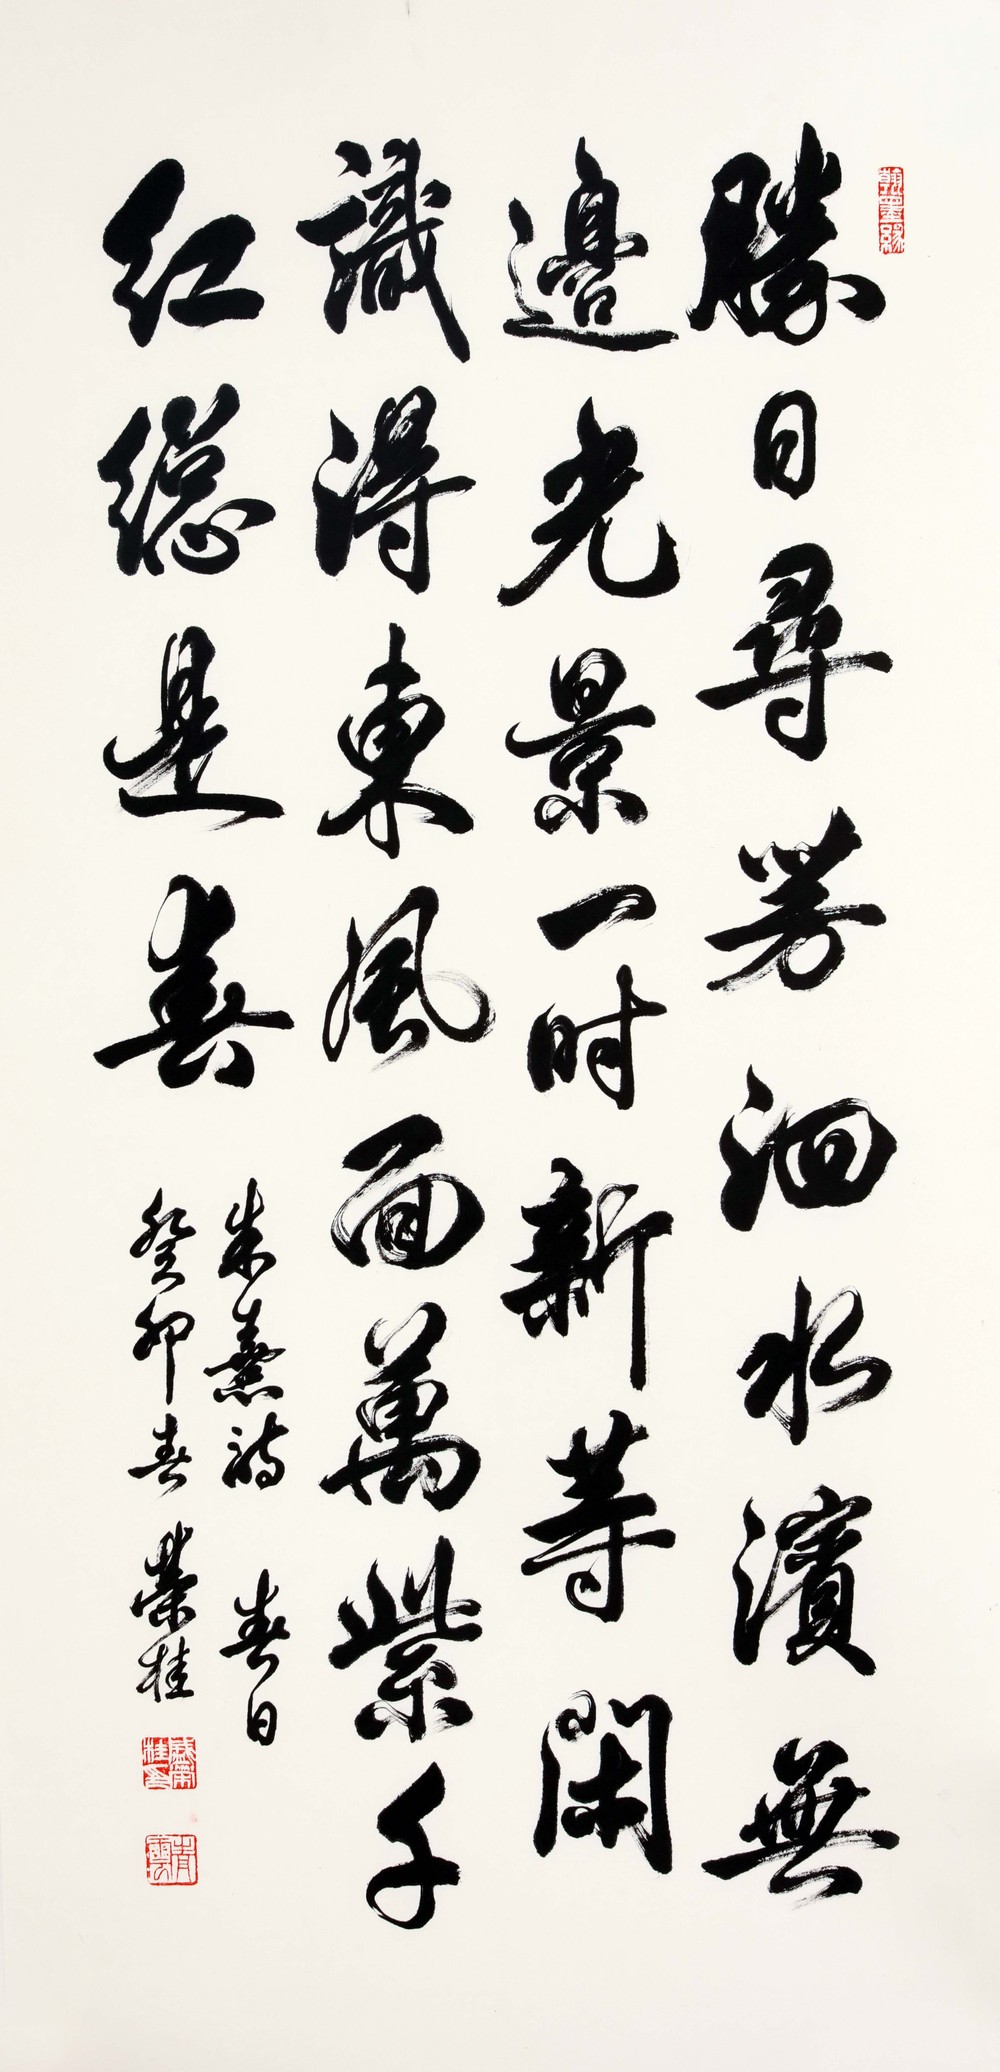 勝日尋芳泗水濱無
邊光景一時新等閑
識得東風面萬紫千
紅總是春
朱熹詩 春日
癸卯春 榮桂
翰墨緣